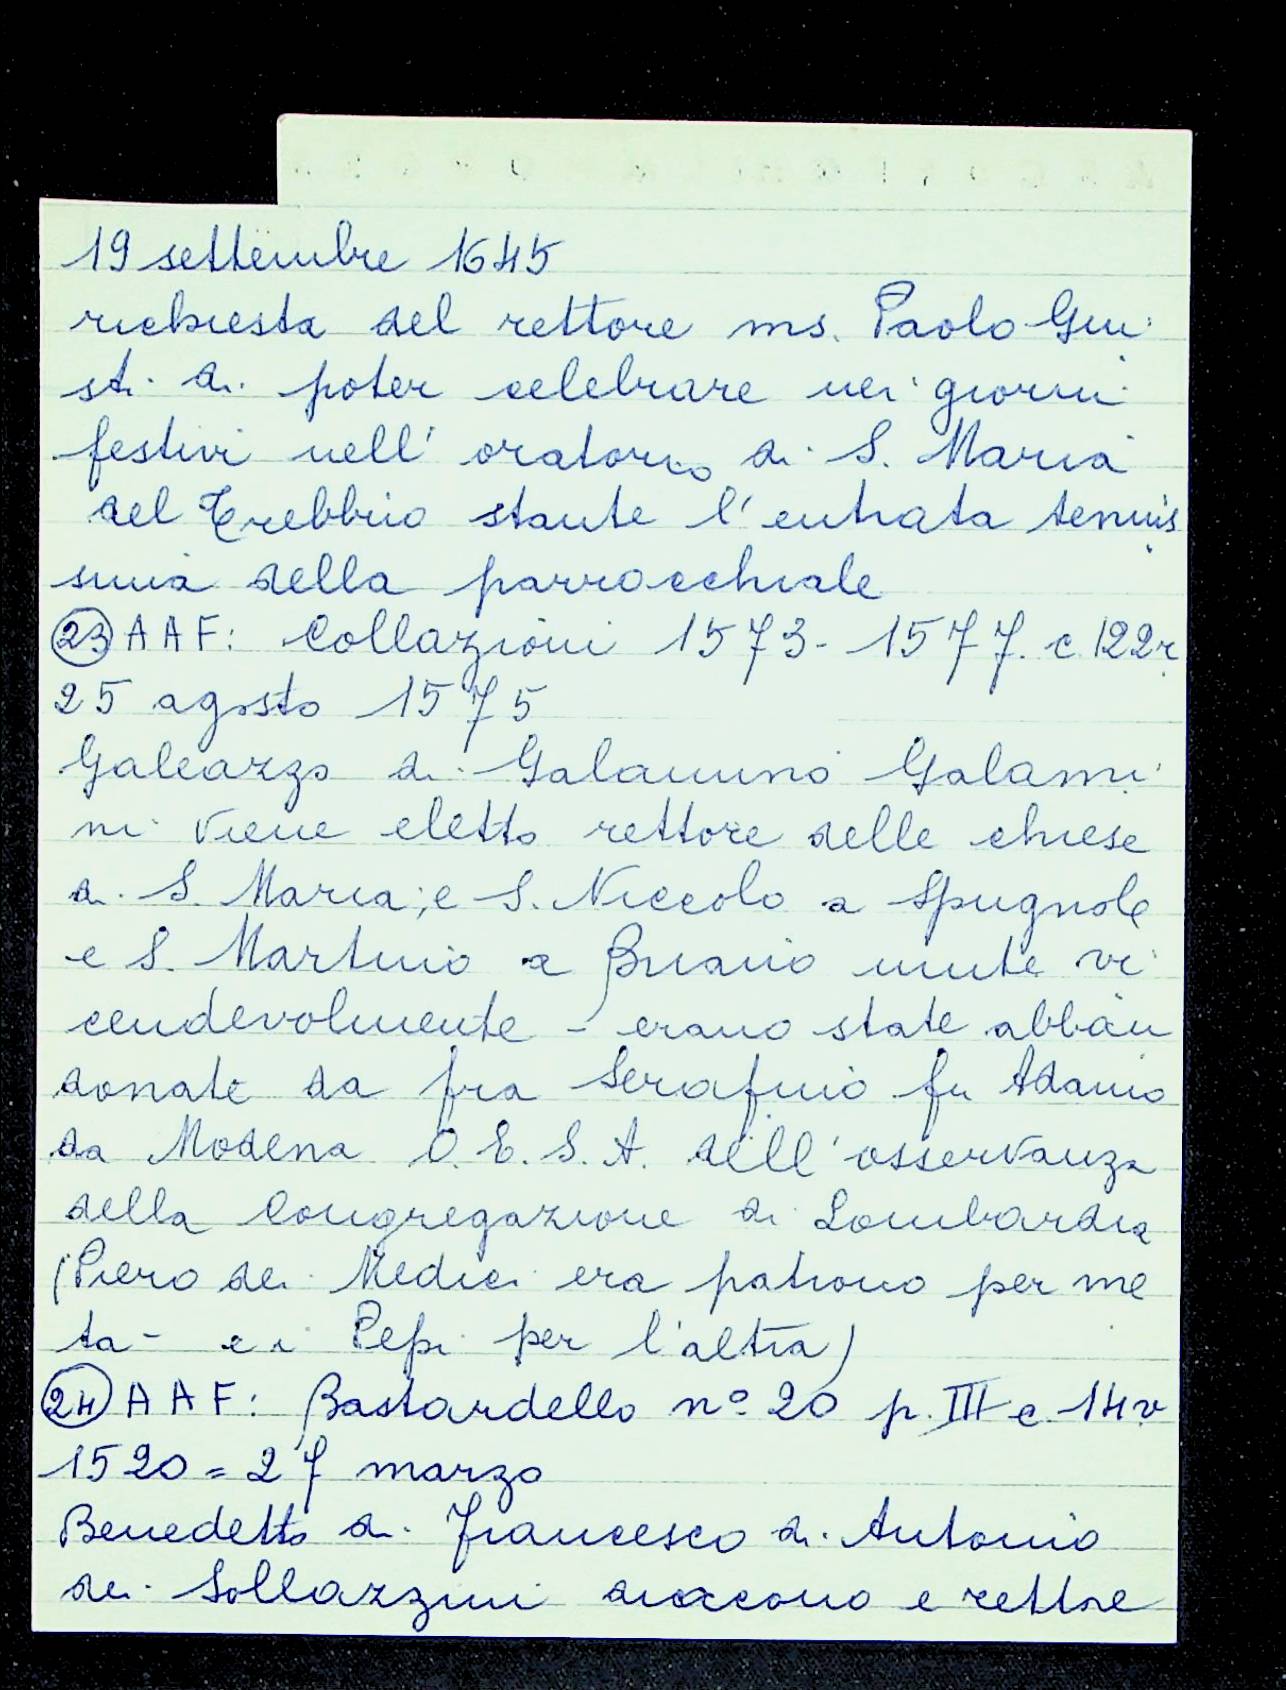 19 settembre 1645
richiesta del rettore ms. Paolo Giu
sti di poter celebrare nei giorni
festivi nell' oratorio di S. Maria
del Trebbio stante l'entrata tenuis
sima della parrocchiale
23 A A F: Collazioni 1573-1577. c 122r
25 agosto 1575
Galeazzo di Galamino Galami
ni viene eletto rettore delle chiese
di S. Maria; e S. Niccolo a Spugnole
e S. Martino a Buiano unite vi
cendevolmente - erano state abban
donate da fra Serafino fu Adamo
da Modena O. E. S. A. dell'osservanza
della Congregazione di Lombardia
(Piero dei Medici era patrono per me
ta - e i Pepi per l'altra)
24 A A F: Bastardello nº 20 p. III c 14v
1520 = 27 marzo
Benedetto di Francesco di Antonio
dei Sollazzini diacono e rettore